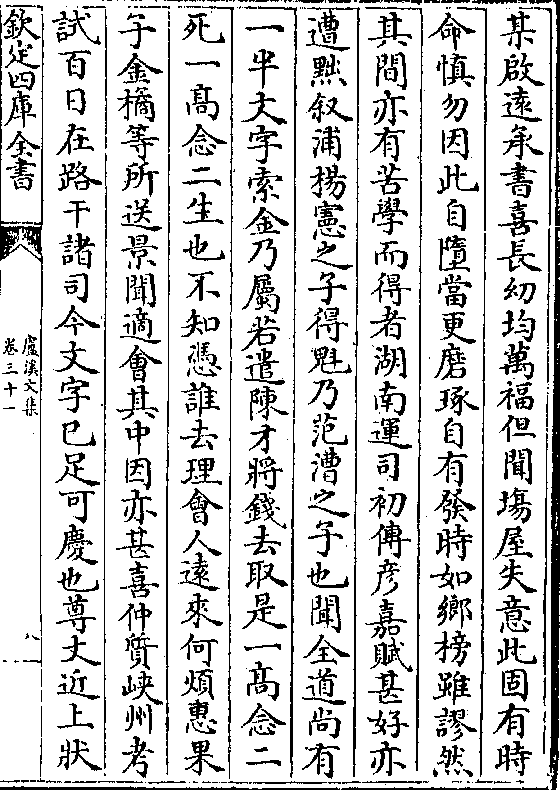 某啟遠承書喜長幼均萬福但聞塲屋失意此固有時
命慎勿因此自墮當更磨琢自有發時如鄉榜雖謬然
其間亦有苦學而得者湖南運司初傳彦嘉賦甚好亦
遭黜叙浦揚憲之子得魁乃范漕之子也聞全道尚有
一半文字索金乃屬若遣陳才將錢去取是一髙念二
死一髙念二生也不知憑誰去理會人遠來何煩惠果
子金橘等所送景聞適會其中因亦甚喜仲質峽州考
試百日在路干諸司今文字已足可慶也尊丈近上狀
欽定四庫全書
盧溪文集
卷三十一
八